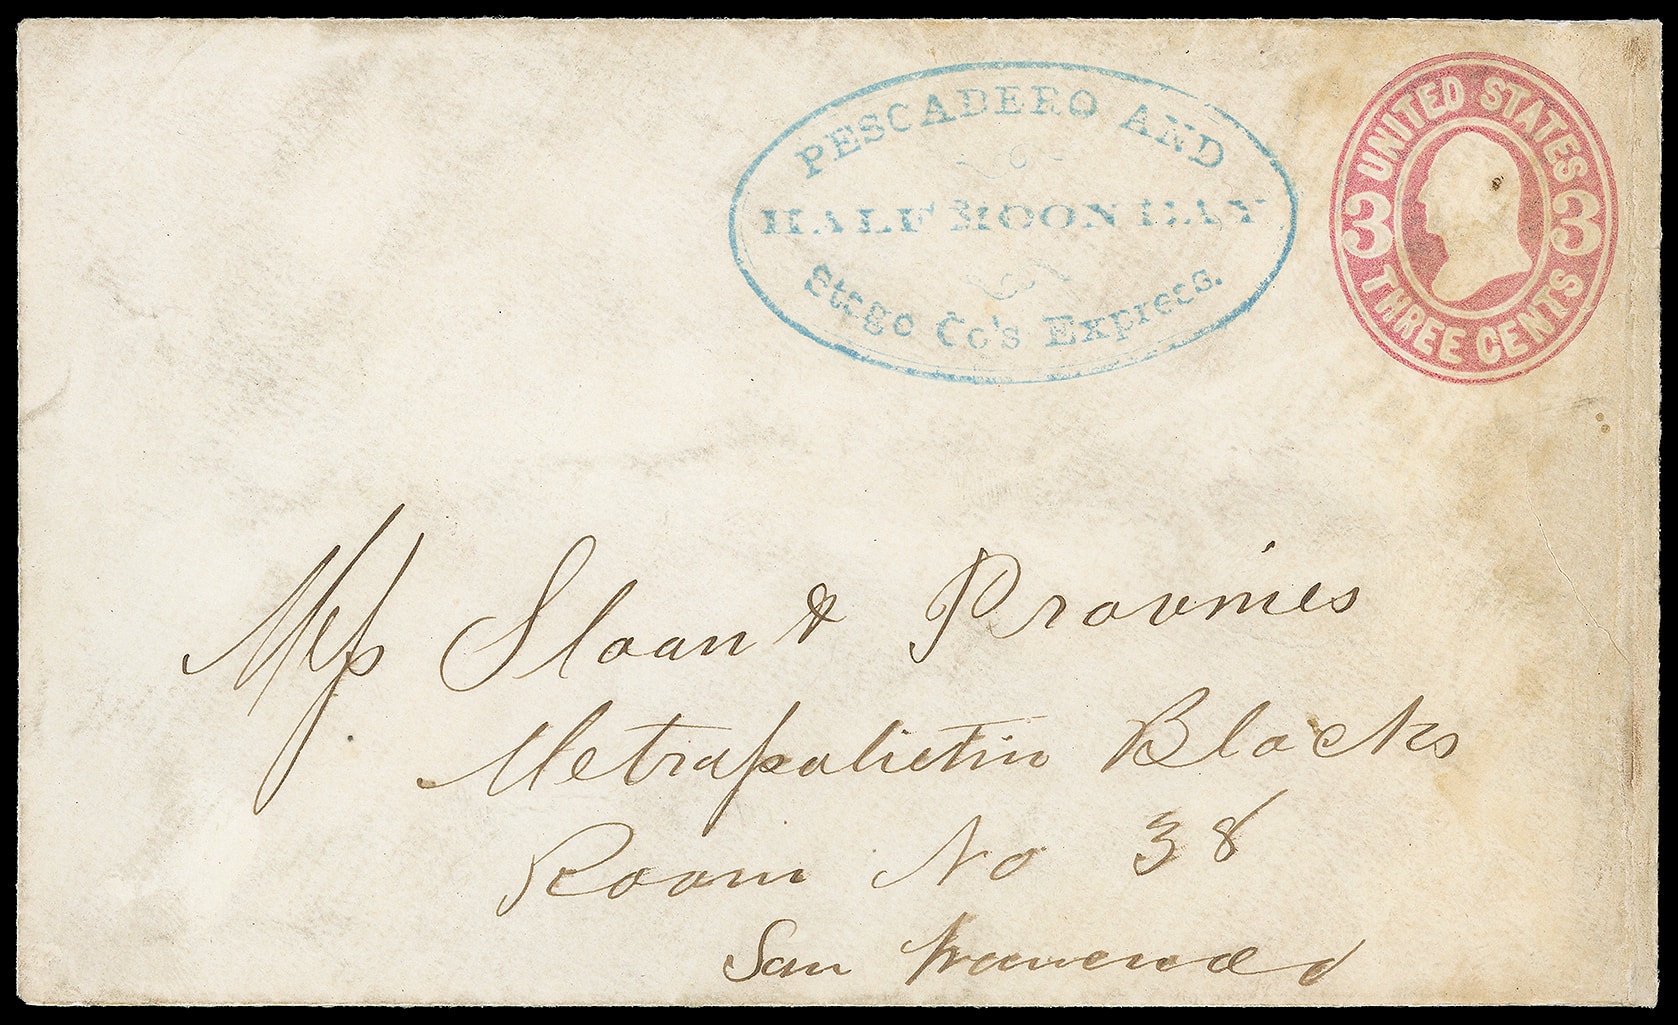 PESCADERO AND
HALF MOON BAY
Stage Co's Express.
UNITED STATES
3 3
THREE CENTS
Mess Sloan & Provines
Metrapolietin Blocks
Room No 38
San